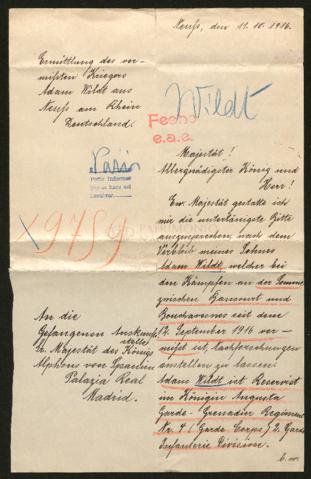 Neuß, den 11.10.1916.
Ermittlung des ver-
mißten Kriegers
Adam Wildt aus
Neuß am Rhein
Deutschland.
Wildt
e.a.e.
x 9759
An die
Gefangenen Auskunft
stelle
Sr. Majestät des Königs
Alphons von Spanien
Palazia Real
Madrid.
Majestät!
Allergnädigster König und
Herr!
Ew. Majestät gestatte ich
mir die untertänigste Bitte
auszusprechen, nach dem
Verbleib meines Sohnes
Adam Wildt, welcher bei
den Kämpfen an der Somme
zwischen Rancourt und
Bouchavesnes seit dem
12. September 1916 ver-
mißt ist, Nachforschungen
anstellen zu lassen.
Adam Wildt ist Reservist
im Königin Augusta
Garde-Grenadier Regiment
Nr. 4 (Garde Corps) 2. Garde
Infanterie Division.